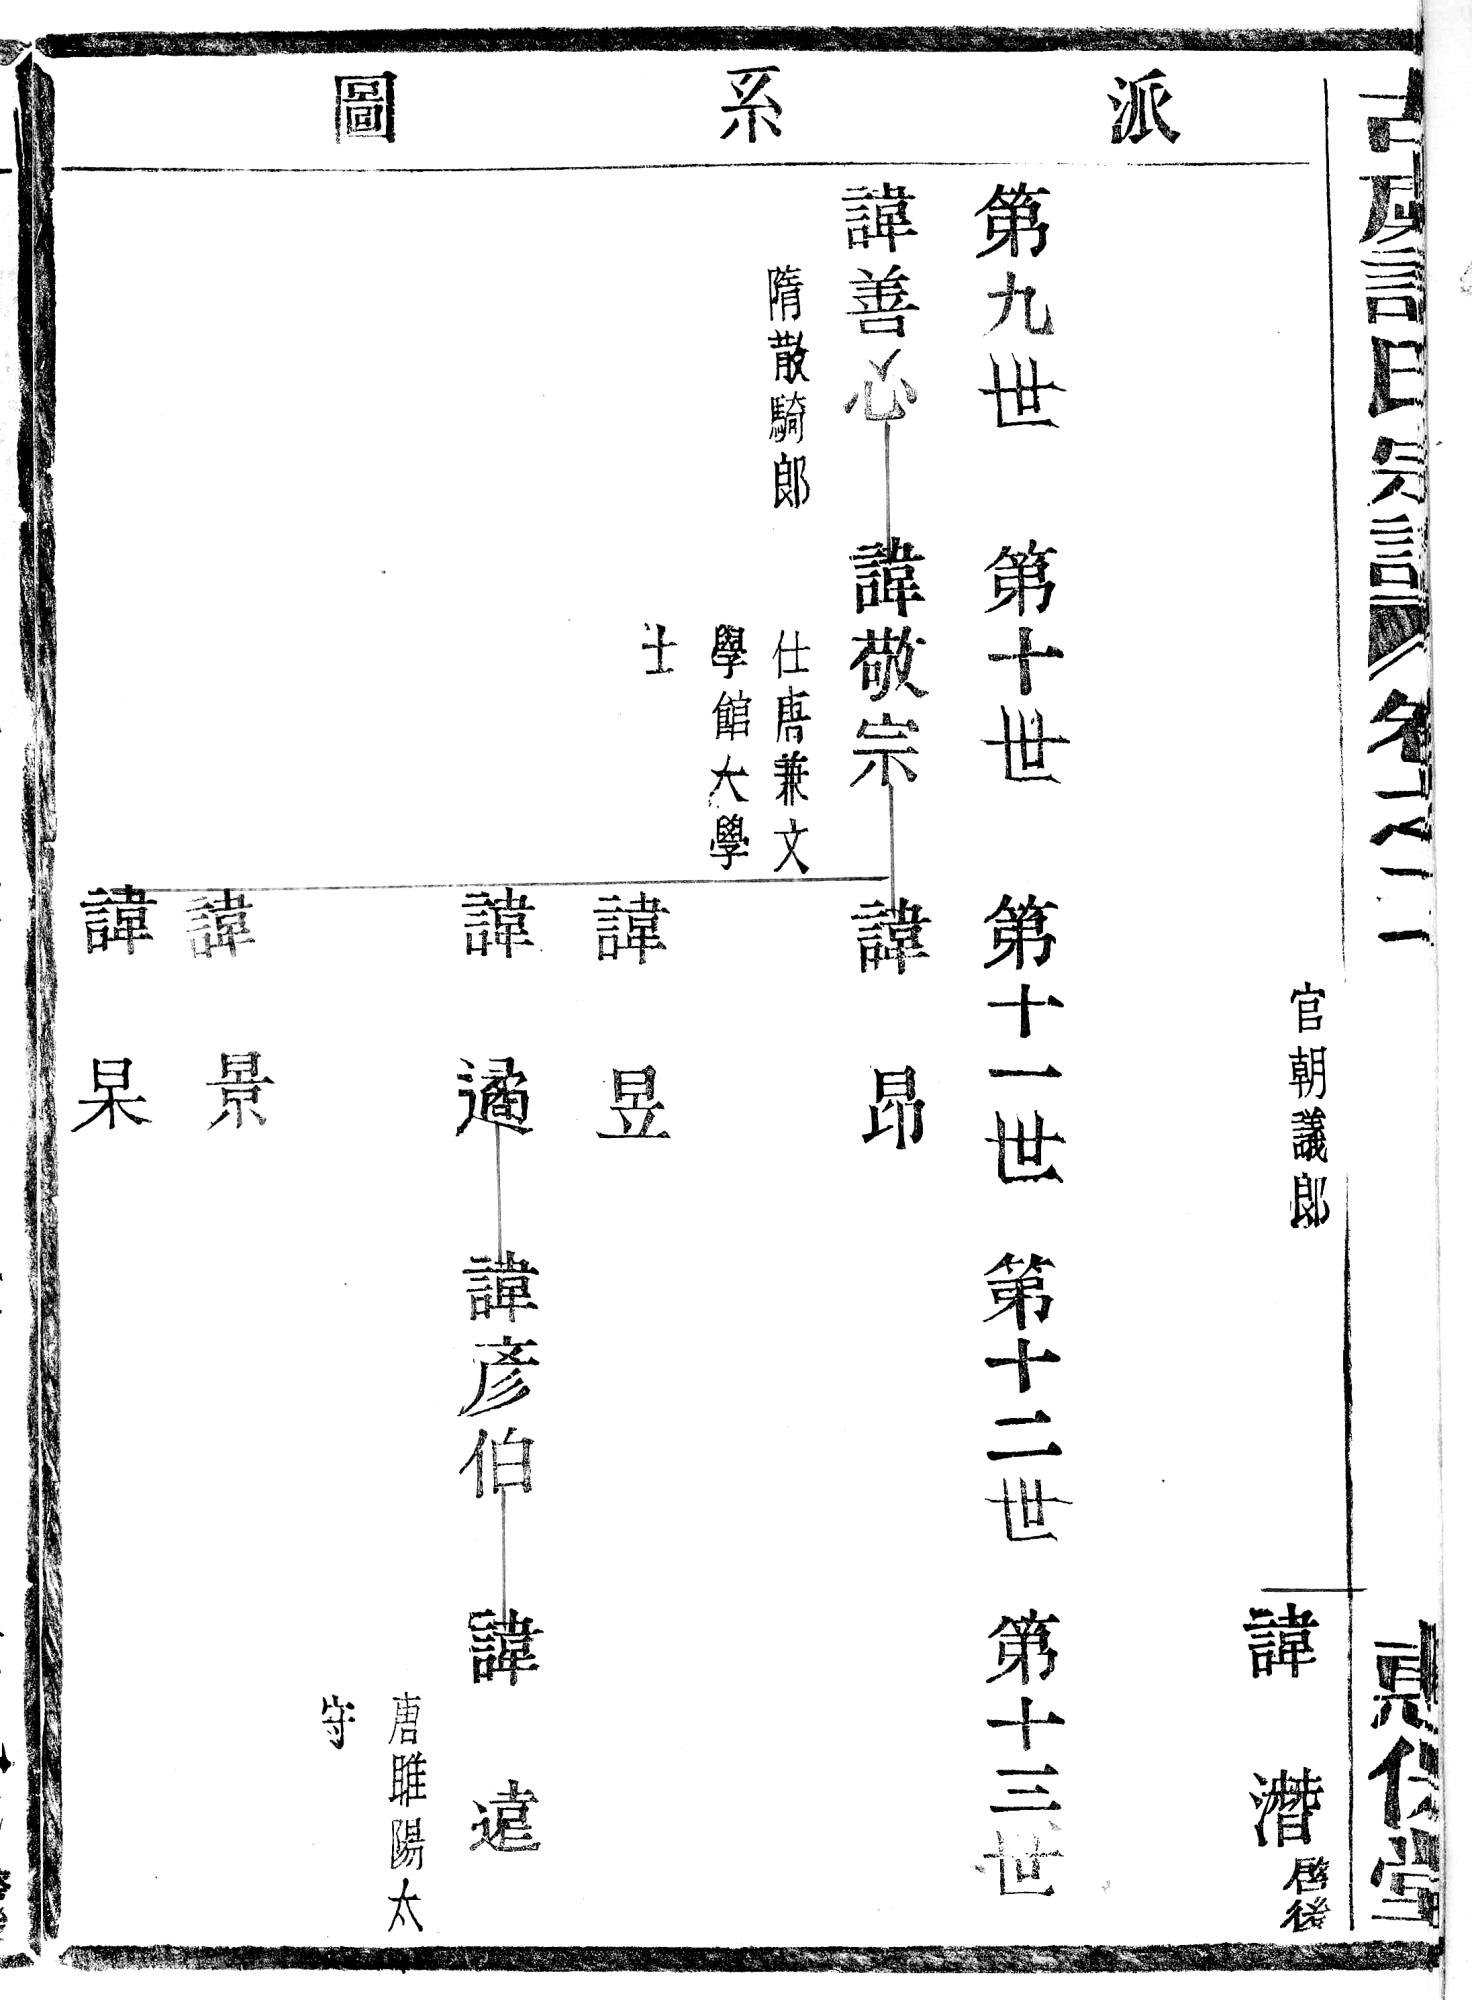 派系圖
古虞許氏宗譜 卷之二
官朝議郎
諱潛
啓後
第九世 第十世 第十一世 第十二世 第十三世
諱善心 諱敬宗 諱昂
隋散騎郎
仕唐兼文
學館大學
士
諱昱
諱遹 諱彥伯 諱遠
唐睢陽太
守
諱景
諱杲